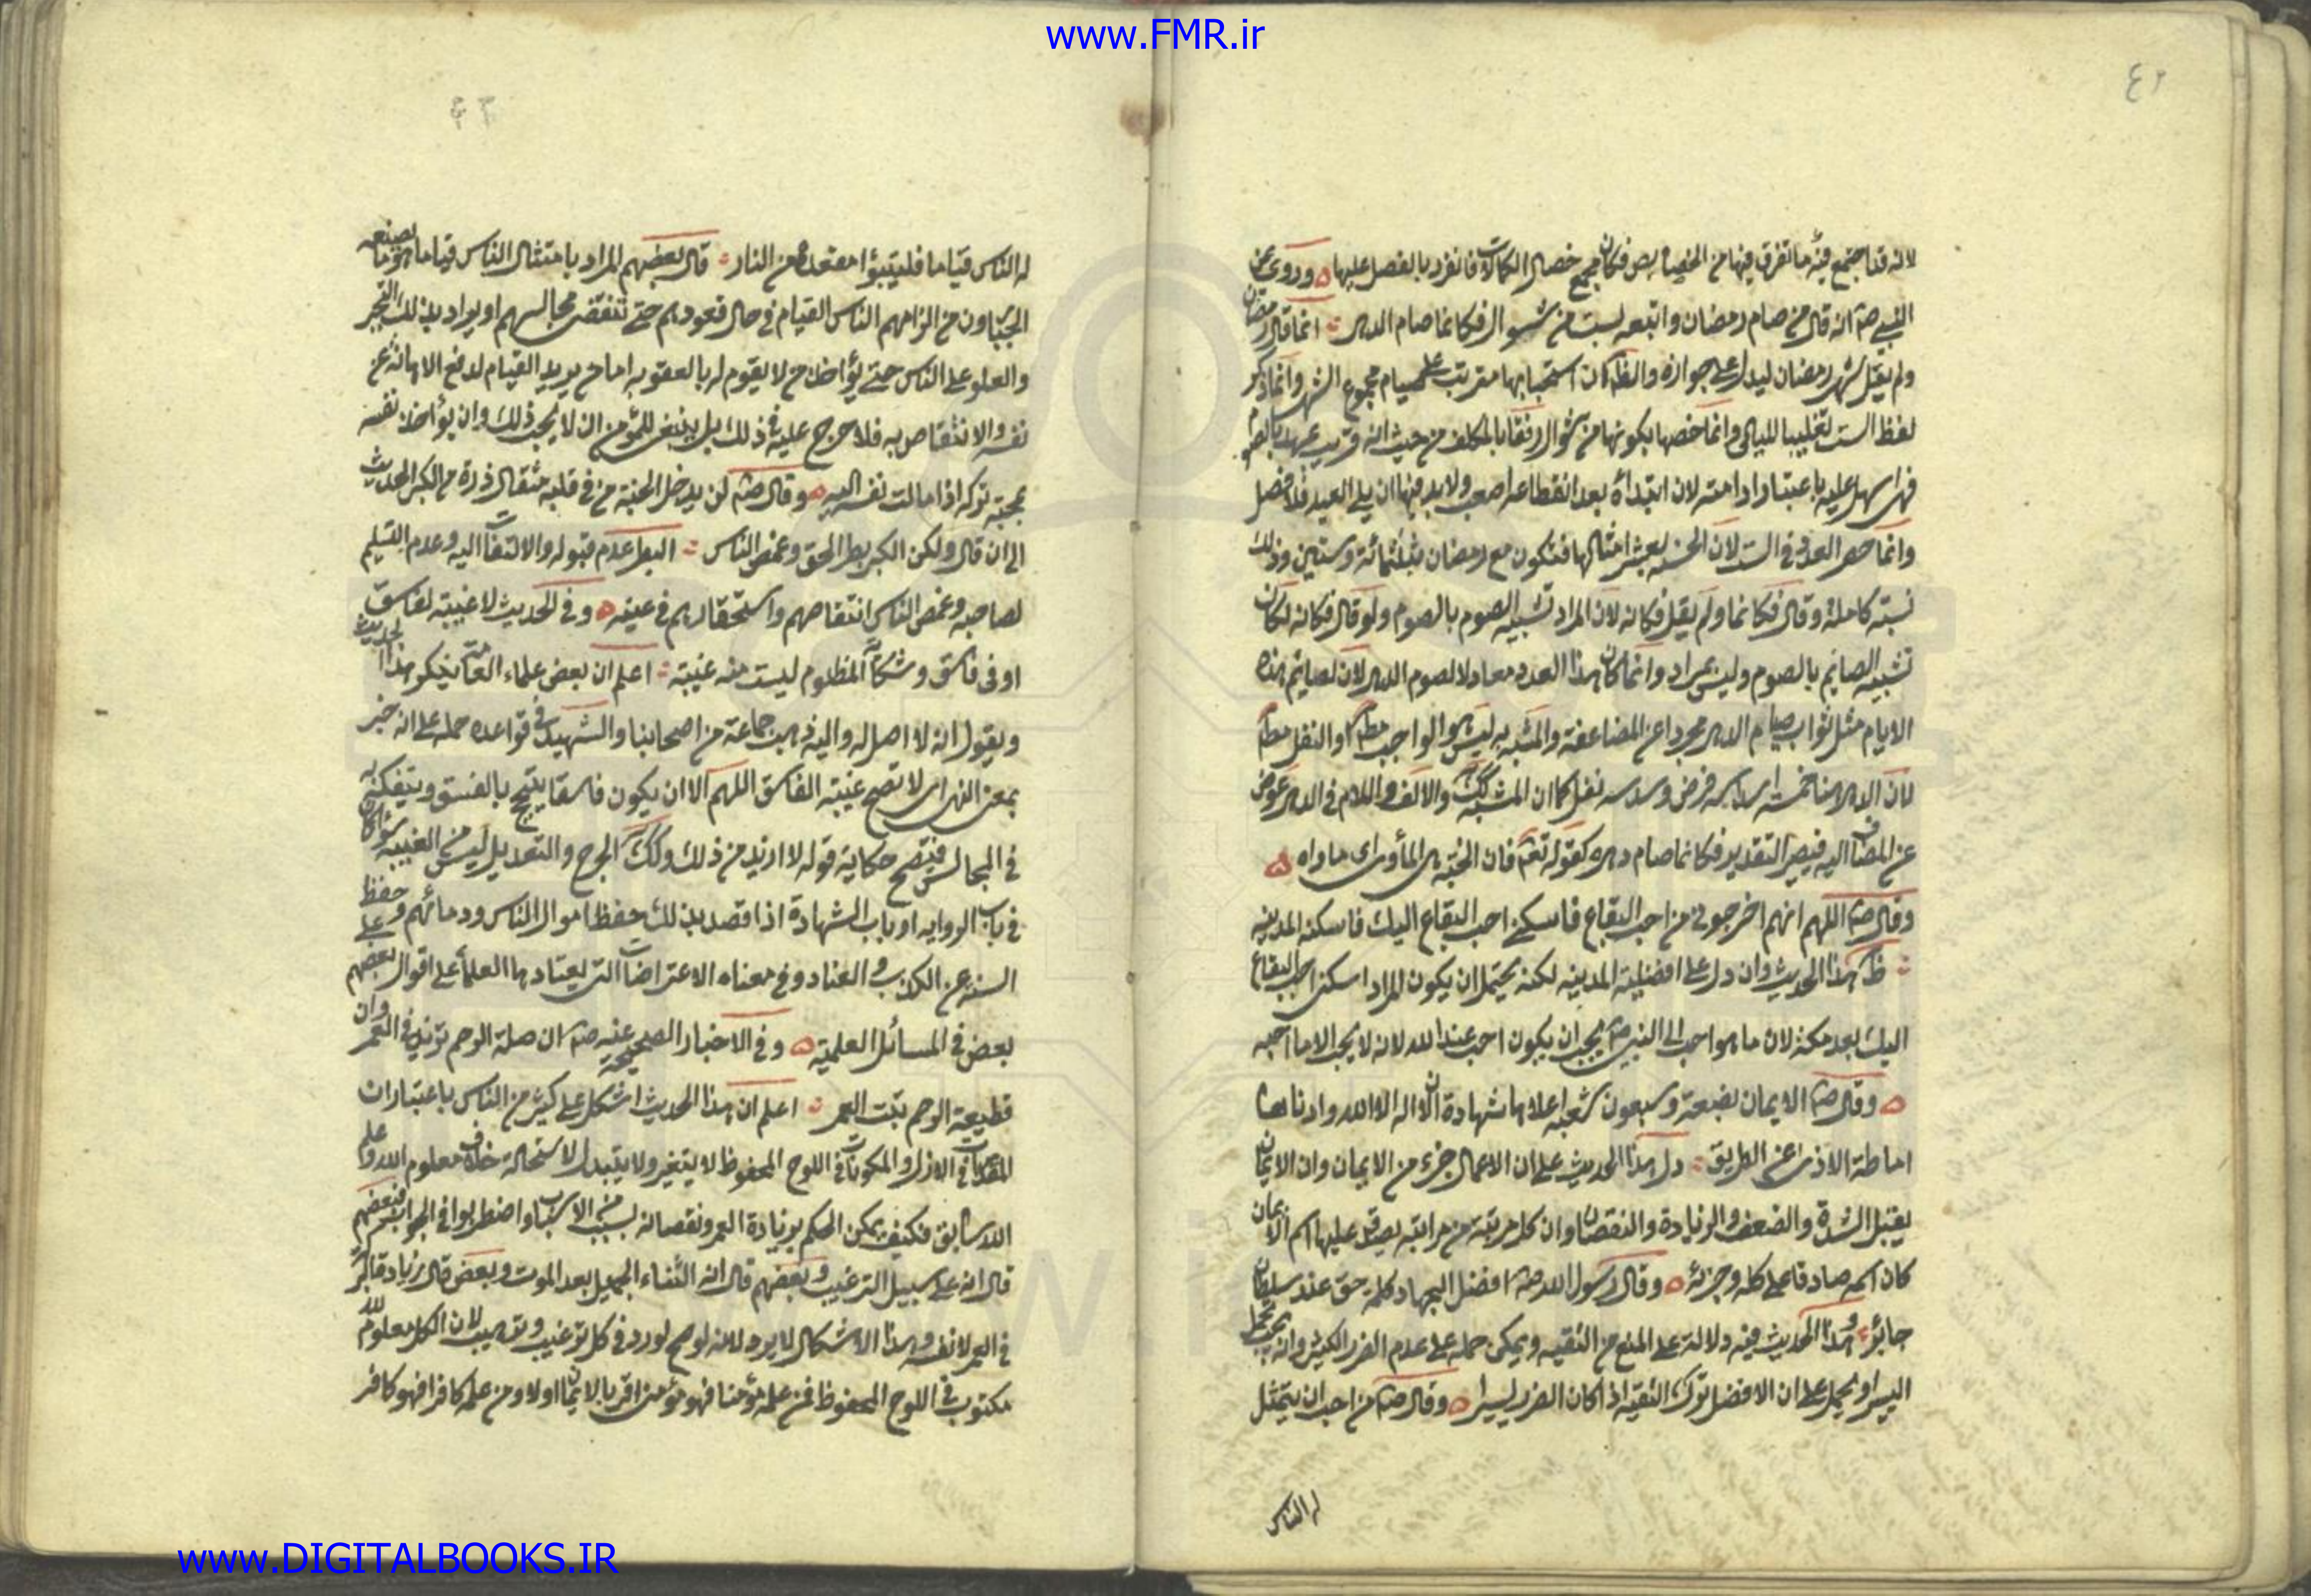 www.FMR.ir
٤٢
لانه قد اجتمع فيه ما تفرق فيها من الخصايص فكان مجمع خصال الكمالات فانفرد بالفضل عليها وروى عن
النبي صم انه قال من صام رمضان واتبعه بست من شوال فكانما صام الدهر انما قال رمضان
ولم يقل شهر رمضان ليدل على جوازه والظ كان استحبابها مترتب على صيام مجموع الشهر وانما ذكر
لفظ الست تغليبا لليالى وانما خصها بكونها من شوال رفقا بالمكلف من حيث انه قريب عهد بالصوم
فهى اسهل عليه باعتبار ادامته لان ابتدأه بعد انقطاعه اصعب ولا بد فيها ان يلى العيد فلا فصل
وانما حصر العدد فى الست لان الحسنه بعشر امثالها فتكون مع رمضان بثلثمائة وستين وذلك
سنة كاملة وقال فكانما ولم يقل فكانه لان المراد تشبيه الصوم بالصوم ولو قال فكانه لكان
تشبيه الصايم بالصوم وليس بمراد وانما كان هذا العدد معادلا لصوم الدهر لان لصايم هذه
الايام مثل ثواب صيام الدهر مجردا عن المضاعفة والمشبه به ليس هو الواجب مطم والنفل مطم
لان الدهر هنا خمسة اسداسه فرض وسدسه نفل كما ان المشبه كك والالف واللام فى الدهر عوض
عن المضاف اليه فيصير التقدير فكانما صام دهره كقوله تعم فان الجنة هى المأوى اى ماواه
وقال صم اللهم انهم اخرجونى من احب البقاع فاسكنى احب البقاع اليك فاسكنه المدينه
ظ هذا الحديث وان دل على افضلية المدينه لكنه يحتمل ان يكون المراد اسكنى احب البقاع
اليك بعد مكة لان ما هو احب الى النبى صم يجب ان يكون احب عند الله لانه لا يحب الا ما احبه
وقال صم الايمان بضعة وسبعون شعبه اعلاها شهادة ان لا اله الا الله وادناها
اماطة الاذى عن الطريق دل هذا الحديث على ان الاعمال جزء من الايمان وان الايمان
يقبل الشدة والضعف والزيادة والنقصان وان كل مرتبة من مراتبه يصدق عليها اسم الايمان
كان اسمه صادقا على كله وجزئه وقال رسول الله صم افضل الجهاد كلمة حق عند سلطان
جابر وهذا الحديث فيه دلالة على المنع من التقيه ويمكن حمله على عدم الضرر الكثير وانه يجب تحمل
اليسير او يحمل على ان الافضل ترك التقيه اذا كان الضرر يسيرا وقال صم من احب ان يتمثل
له الناس
٤٣
له الناس قياما فليتبؤا مقعده من النار قال بعضهم المراد بامتثال الناس قياما هو ما يصنعه
الجبارون من الزامهم الناس القيام فى حال قعودهم حتى تنقضى مجالسهم او يراد بذلك التجبر
والعلو على الناس حتى يؤاخذ من لا يقوم له بالعقوبه اما من يريد القيام لدفع الاهانة عن
نفسه والانتقاص به فلا حرج عليه فى ذلك بل ينبغى للمؤمن ان لا يحب ذلك وان يؤاخذ نفسه
بمحبة تركه اذا مالت نفسه اليه وقال صم لن يدخل الجنة من فى قلبه مثقال ذرة من الكبر الحديث
الى ان قال ولكن الكبر بطر الحق وغمص الناس البطر عدم قبوله والالتفات اليه وعدم التسليم
لصاحبه وغمص الناس انتقاصهم واستحقارهم فى عينه وفى الحديث لا غيبة لفاسق
او فى فاسق وشكاية المظلوم ليست منه غيبة اعلم ان بعض علماء العامة ينكر هذا الحديث
ويقول انه لا اصل له واليه ذهب جماعة من اصحابنا والشهيد فى قواعده حمله على انه خبر
بمعنى النهى اى لا تصح غيبة الفاسق اللهم الا ان يكون فاسقا يتبجح بالفسق ويتفكه به
فى المجالس فيصح حكاية قوله لا ازيد من ذلك وكك الجرح والتعديل ليس من الغيبه سواء كان
فى باب الروايه او باب الشهادة اذا قصد بذلك حفظ اموال الناس ودمائهم وحفظ
السنة عن الكذب والعناد وفى معناه الاعتراضات التى يعتادها العلماء على اقوال بعضهم على
بعض فى المسائل العلمية وفى الاخبار الصحيحة عنه صم ان صلة الرحم تزيد فى العمر وان
قطيعة الرحم تبت العمر اعلم ان هذا الحديث اشكل على كثير من الناس باعتبار ان
المقدرات فى الازل والمكتوبات فى اللوح المحفوظ لا يتغير ولا يتبدل لاستحالة خلاف معلوم الله وعلم
الله سابق فكيف يمكن الحكم بزيادة العمر ونقصانه بسبب من الاسباب واضطربوا فى الجواب فبعضهم
قال انه على سبيل الترغيب وبعضهم قال انه الثناء الجميل بعد الموت وبعض قال زيادة البركة
فى العمر لا نفسه وهذا الاشكال لا يرد لانه لو صح لورد فى كل ترغيب وترهيب لان الكل معلوم لله
مكتوب فى اللوح المحفوظ فمن علمه مؤمنا فهو مؤمن اقر بالايمان او لا ومن علمه كافرا فهو كافر
www.DIGITALBOOKS.IR